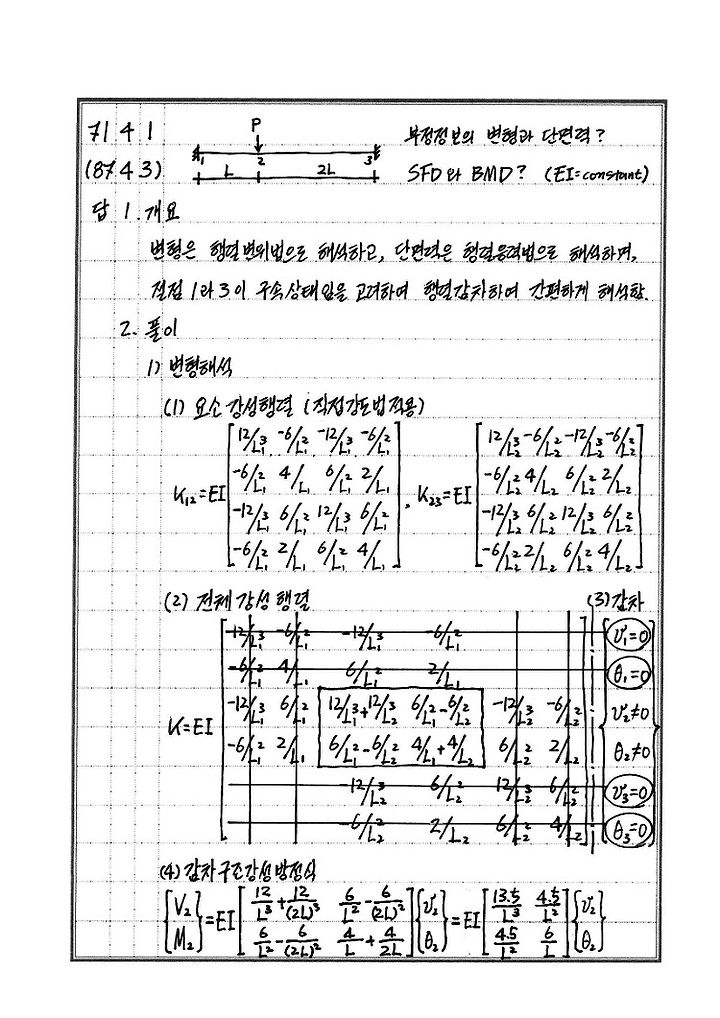 71 4 1
(87 4 3)
P
1 2 3
L 2L
부정정보의 변형과 단면력?
SFD와 BMD? (EI=constant)
답 1. 개요
변형은 행렬변위법으로 해석하고, 단면력은 행렬응력법으로 해석하며,
절점 1과 3이 구속상태임을 고려하여 행렬감차하여 간편하게 해석함.
2. 풀이
1) 변형해석
(1) 요소강성행렬 (직접강도법적용)
K₁₂=EI[12/L₁³ -6/L₁² -12/L₁³ -6/L₁²
-6/L₁² 4/L₁ 6/L₁² 2/L₁
-12/L₁³ 6/L₁² 12/L₁³ 6/L₁²
-6/L₁² 2/L₁ 6/L₁² 4/L₁]
, K₂₃=EI[12/L₂³ -6/L₂² -12/L₂³ -6/L₂²
-6/L₂² 4/L₂ 6/L₂² 2/L₂
-12/L₂³ 6/L₂² 12/L₂³ 6/L₂²
-6/L₂² 2/L₂ 6/L₂² 4/L₂]
(2) 전체강성행렬 (3) 감차
K=EI[12/L₁³ -6/L₁² -12/L₁³ -6/L₁² {v₁=0
-6/L₁² 4/L₁ 6/L₁² 2/L₁ θ₁=0
-12/L₁³ 6/L₁² 12/L₁³+12/L₂³ 6/L₁²-6/L₂² -12/L₂³ -6/L₂² v₂≠0
-6/L₁² 2/L₁ 6/L₁²-6/L₂² 4/L₁+4/L₂ 6/L₂² 2/L₂ θ₂≠0
-12/L₂³ 6/L₂² 12/L₂³ 6/L₂² v₃=0
-6/L₂² 2/L₂ 6/L₂² 4/L₂] θ₃=0}
(4) 감차구조강성방정식
{V₂ M₂}=EI[12/L³+12/(2L)³ 6/L²-6/(2L)²
6/L²-6/(2L)² 4/L+4/2L]{v₂ θ₂}=EI[13.5/L³ 4.5/L²
4.5/L² 6/L]{v₂ θ₂}